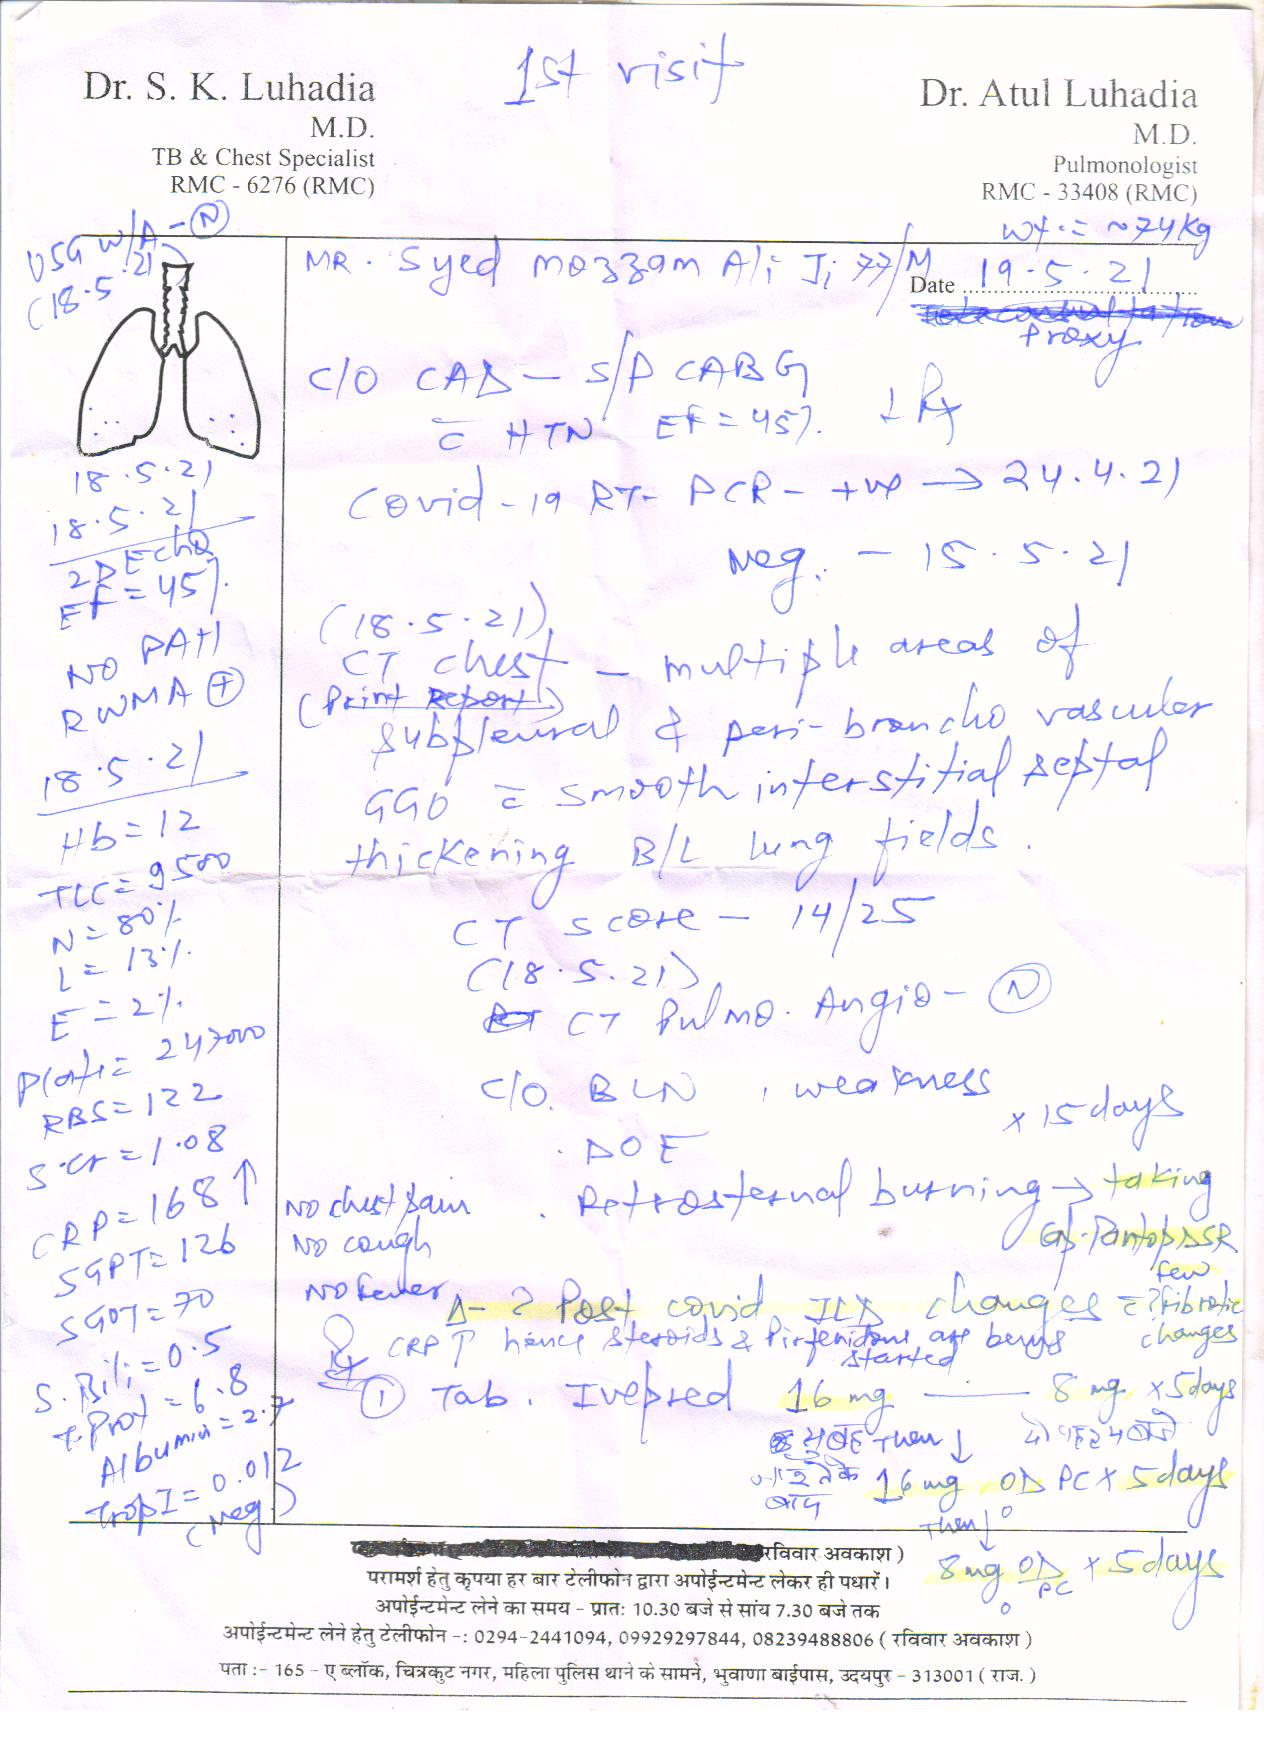 1st visit
Dr. S. K. Luhadia
M.D.
TB & Chest Specialist
RMC - 6276 (RMC)
Dr. Atul Luhadia
M.D.
Pulmonologist
RMC - 33408 (RMC)
Wt. = ~74 Kg
USG W/A - N
(18.5.21
MR. Syed mozzam Ali Ji 77/M
Date 19.5.21
Proxy
C/O CAD - S/P CABG
c̄ HTN EF = 45%. ↓ Rx
Covid-19 RT-PCR - +ve → 24.4.21
Neg. - 15.5.21
(18.5.21)
CT chest - multiple areas of
(Print Report)
subpleural & peri-broncho vascular
GGO c̄ smooth interstitial septal
thickening B/L lung fields.
CT score - 14/25
(18.5.21)
CT Pulmo. Angio - N
C/O. BLN, weakness
x 15 days
. DOE
. Retrosternal burning → taking
Pantop DSR
No chest pain
No cough
No fever
Δ - ? Post covid ILD changes c̄ ? few fibrotic changes
CRP ↑ hence steroids & Pirfenidone are being started
① Tab. Ivepred 16 mg — 8 mg x 5 days
सुबह नाश्ते के बाद Then ↓ दोपहर 4 बजे
16 mg OD PC x 5 days
Then ↓
8 mg OD PC x 5 days
18.5.21
18.5.21
2D Echo
EF = 45%.
NO PAH
RWMA +
18.5.21
Hb = 12
TLC = 9500
N = 80%
L = 13%.
E = 2%
Plate = 247000
RBS = 122
S.Cr = 1.08
CRP = 168 ↑
SGPT = 126
SGOT = 70
S. Bili = 0.5
T. Prot = 6.8
Albumin = 2.7
Trop I = 0.012
(Neg.)
रविवार अवकाश )
परामर्श हेतु कृपया हर बार टेलीफोन द्वारा अपोईन्टमेन्ट लेकर ही पधारें।
अपोईन्टमेन्ट लेने का समय - प्रातः 10.30 बजे से सांय 7.30 बजे तक
अपोईन्टमेन्ट लेने हेतु टेलीफोन -: 0294-2441094, 09929297844, 08239488806 ( रविवार अवकाश )
पता :- 165 - ए ब्लॉक, चित्रकुट नगर, महिला पुलिस थाने के सामने, भुवाणा बाईपास, उदयपुर - 313001 ( राज. )